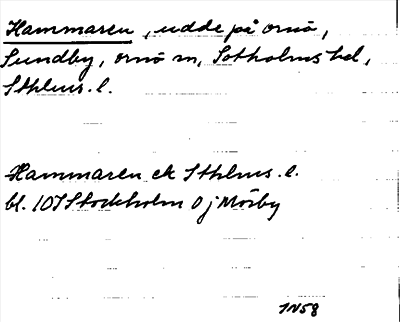 Hammaren, udde på Ornö,
Sundby, Ornö sn, Sotholms hd,
Sthlms. l.
Hammaren ek Sthlms. l.
bl. 107 Stockholm O j Mörby
1N58